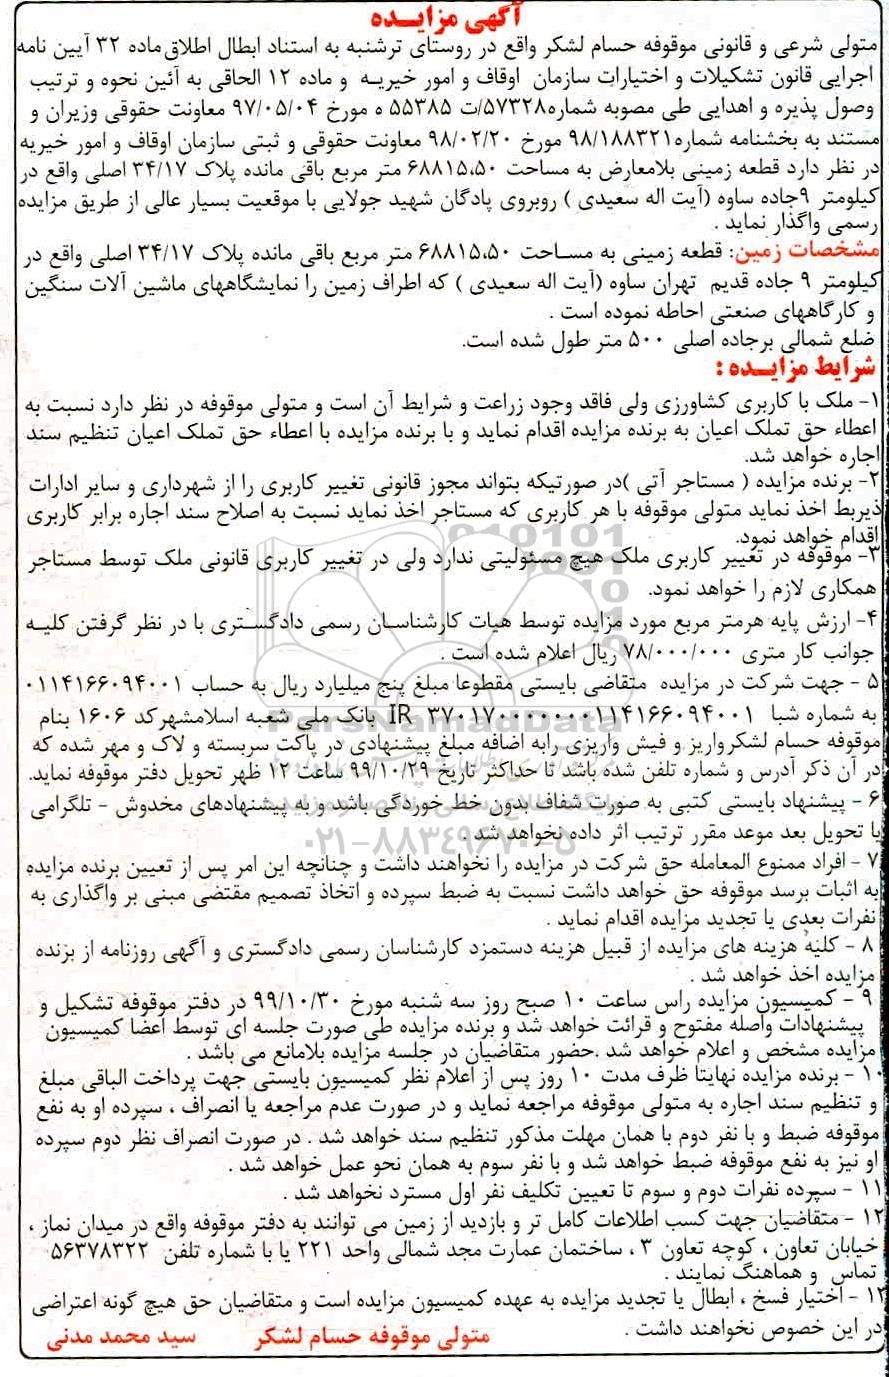 آگهی مزایـده
متولی شرعی و قانونی موقوفه حسام لشکر واقع در روستای ترشنبه به استناد ابطال اطلاق ماده ۳۲ آیین نامه
اجرایی قانون تشکیلات و اختیارات سازمان اوقاف و امور خیریه و ماده ۱۲ الحاقی به آئین نحوه و ترتیب
وصول پذیره و اهدایی طی مصوبه شماره۵۷۳۲۸/ت ۵۵۳۸۵ ه مورخ ۹۷/۰۵/۰۴ معاونت حقوقی وزیران و
مستند به بخشنامه شماره۹۸/۱۸۸۳۲۱ مورخ ۹۸/۰۲/۲۰ معاونت حقوقی و ثبتی سازمان اوقاف و امور خیریه
در نظر دارد قطعه زمینی بلامعارض به مساحت ۶۸۸۱۵،۵۰ متر مربع باقی مانده پلاک ۳۴/۱۷ اصلی واقع در
کیلومتر ۹جاده ساوه (آیت اله سعیدی ) روبروی پادگان شهید جولایی با موقعیت بسیار عالی از طریق مزایده
رسمی واگذار نماید .
مشخصات زمین: قطعه زمینی به مساحت ۶۸۸۱۵،۵۰ متر مربع باقی مانده پلاک ۳۴/۱۷ اصلی واقع در
کیلومتر ۹ جاده قدیم تهران ساوه (آیت اله سعیدی ) که اطراف زمین را نمایشگاههای ماشین آلات سنگین
و کارگاههای صنعتی احاطه نموده است .
ضلع شمالی برجاده اصلی ۵۰۰ متر طول شده است.
شرایط مزایـده :
۱- ملک با کاربری کشاورزی ولی فاقد وجود زراعت و شرایط آن است و متولی موقوفه در نظر دارد نسبت به
اعطاء حق تملک اعیان به برنده مزایده اقدام نماید و با برنده مزایده با اعطاء حق تملک اعیان تنظیم سند
اجاره خواهد شد.
۲- برنده مزایده ( مستاجر آتی )در صورتیکه بتواند مجوز قانونی تغییر کاربری را از شهرداری و سایر ادارات
ذیربط اخذ نماید متولی موقوفه با هر کاربری که مستاجر اخذ نماید نسبت به اصلاح سند اجاره برابر کاربری
اقدام خواهد نمود.
۳- موقوفه در تغییر کاربری ملک هیچ مسئولیتی ندارد ولی در تغییر کاربری قانونی ملک توسط مستاجر
همکاری لازم را خواهد نمود.
۴- ارزش پایه هرمتر مربع مورد مزایده توسط هیات کارشناسان رسمی دادگستری با در نظر گرفتن کلیه
جوانب کار متری ۷۸/۰۰۰/۰۰۰ ریال اعلام شده است .
۵ - جهت شرکت در مزایده متقاضی بایستی مقطوعا مبلغ پنج میلیارد ریال به حساب ۰۱۱۴۱۶۶۰۹۴۰۰۱
به شماره شبا IR ۳۷۰۱۷۰۰۰۰۰۰۰۱۱۴۱۶۶۰۹۴۰۰۱ بانک ملی شعبه اسلامشهرکد ۱۶۰۶ بنام
موقوفه حسام لشکرواریز و فیش واریزی رابه اضافه مبلغ پیشنهادی در پاکت سربسته و لاک و مهر شده که
در آن ذکر آدرس و شماره تلفن شده باشد تا حداکثر تاریخ ۹۹/۱۰/۲۹ ساعت ۱۲ ظهر تحویل دفتر موقوفه نماید.
۶ - پیشنهاد بایستی کتبی به صورت شفاف بدون خط خوردگی باشد و به پیشنهادهای مخدوش - تلگرامی
یا تحویل بعد موعد مقرر ترتیب اثر داده نخواهد شد .
۷ - افراد ممنوع المعامله حق شرکت در مزایده را نخواهند داشت و چنانچه این امر پس از تعیین برنده مزایده
به اثبات برسد موقوفه حق خواهد داشت نسبت به ضبط سپرده و اتخاذ تصمیم مقتضی مبنی بر واگذاری به
نفرات بعدی یا تجدید مزایده اقدام نماید .
۸ - کلیه هزینه های مزایده از قبیل هزینه دستمزد کارشناسان رسمی دادگستری و آگهی روزنامه از برنده
مزایده اخذ خواهد شد .
۹ - کمیسیون مزایده راس ساعت ۱۰ صبح روز سه شنبه مورخ ۹۹/۱۰/۳۰ در دفتر موقوفه تشکیل و
پیشنهادات واصله مفتوح و قرائت خواهد شد و برنده مزایده طی صورت جلسه ای توسط اعضا کمیسیون
مزایده مشخص و اعلام خواهد شد .حضور متقاضیان در جلسه مزایده بلامانع می باشد .
۱۰ - برنده مزایده نهایتا ظرف مدت ۱۰ روز پس از اعلام نظر کمیسیون بایستی جهت پرداخت الباقی مبلغ
و تنظیم سند اجاره به متولی موقوفه مراجعه نماید و در صورت عدم مراجعه یا انصراف ، سپرده او به نفع
موقوفه ضبط و با نفر دوم با همان مهلت مذکور تنظیم سند خواهد شد . در صورت انصراف نظر دوم سپرده
او نیز به نفع موقوفه ضبط خواهد شد و با نفر سوم به همان نحو عمل خواهد شد .
۱۱ - سپرده نفرات دوم و سوم تا تعیین تکلیف نفر اول مسترد نخواهد شد .
۱۲ - متقاضیان جهت کسب اطلاعات کامل تر و بازدید از زمین می توانند به دفتر موقوفه واقع در میدان نماز ،
خیابان تعاون ، کوچه تعاون ۳ ، ساختمان عمارت مجد شمالی واحد ۲۲۱ یا با شماره تلفن ۵۶۳۷۸۳۲۲
تماس و هماهنگ نمایند .
۱۳ - اختیار فسخ ، ابطال یا تجدید مزایده به عهده کمیسیون مزایده است و متقاضیان حق هیچ گونه اعتراضی
در این خصوص نخواهند داشت .
متولی موقوفه حسام لشکر سید محمد مدنی
ParsNamadData
۰۲۱-۸۸۳۴۹۶۷۰-۵